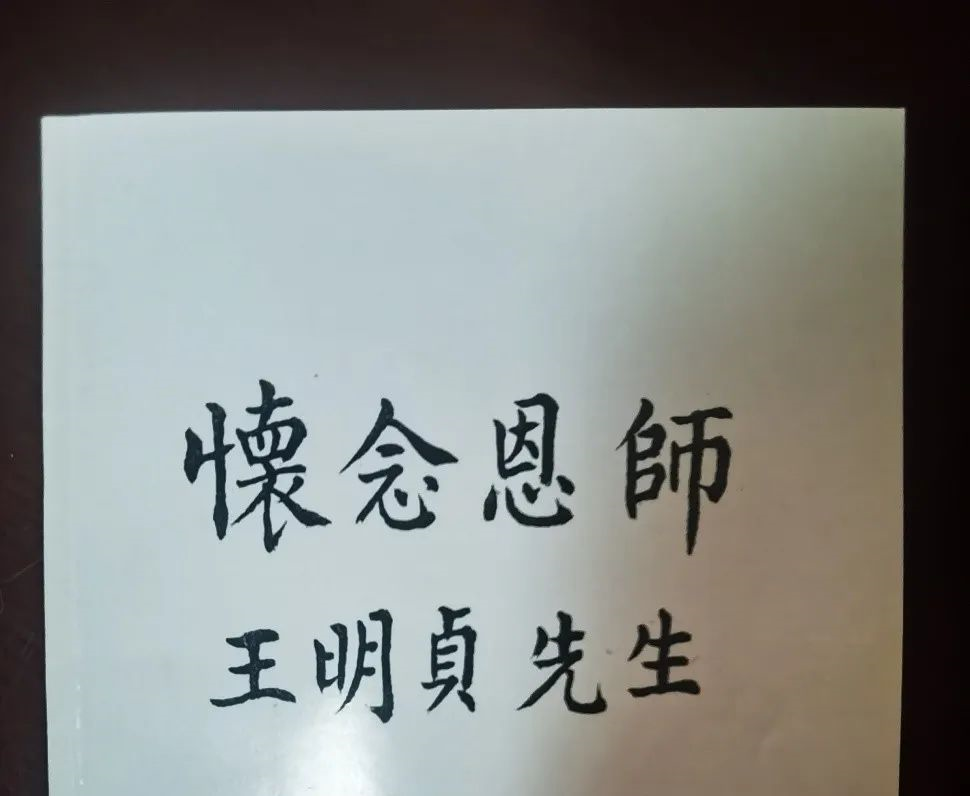 懷念恩師
王明貞先生